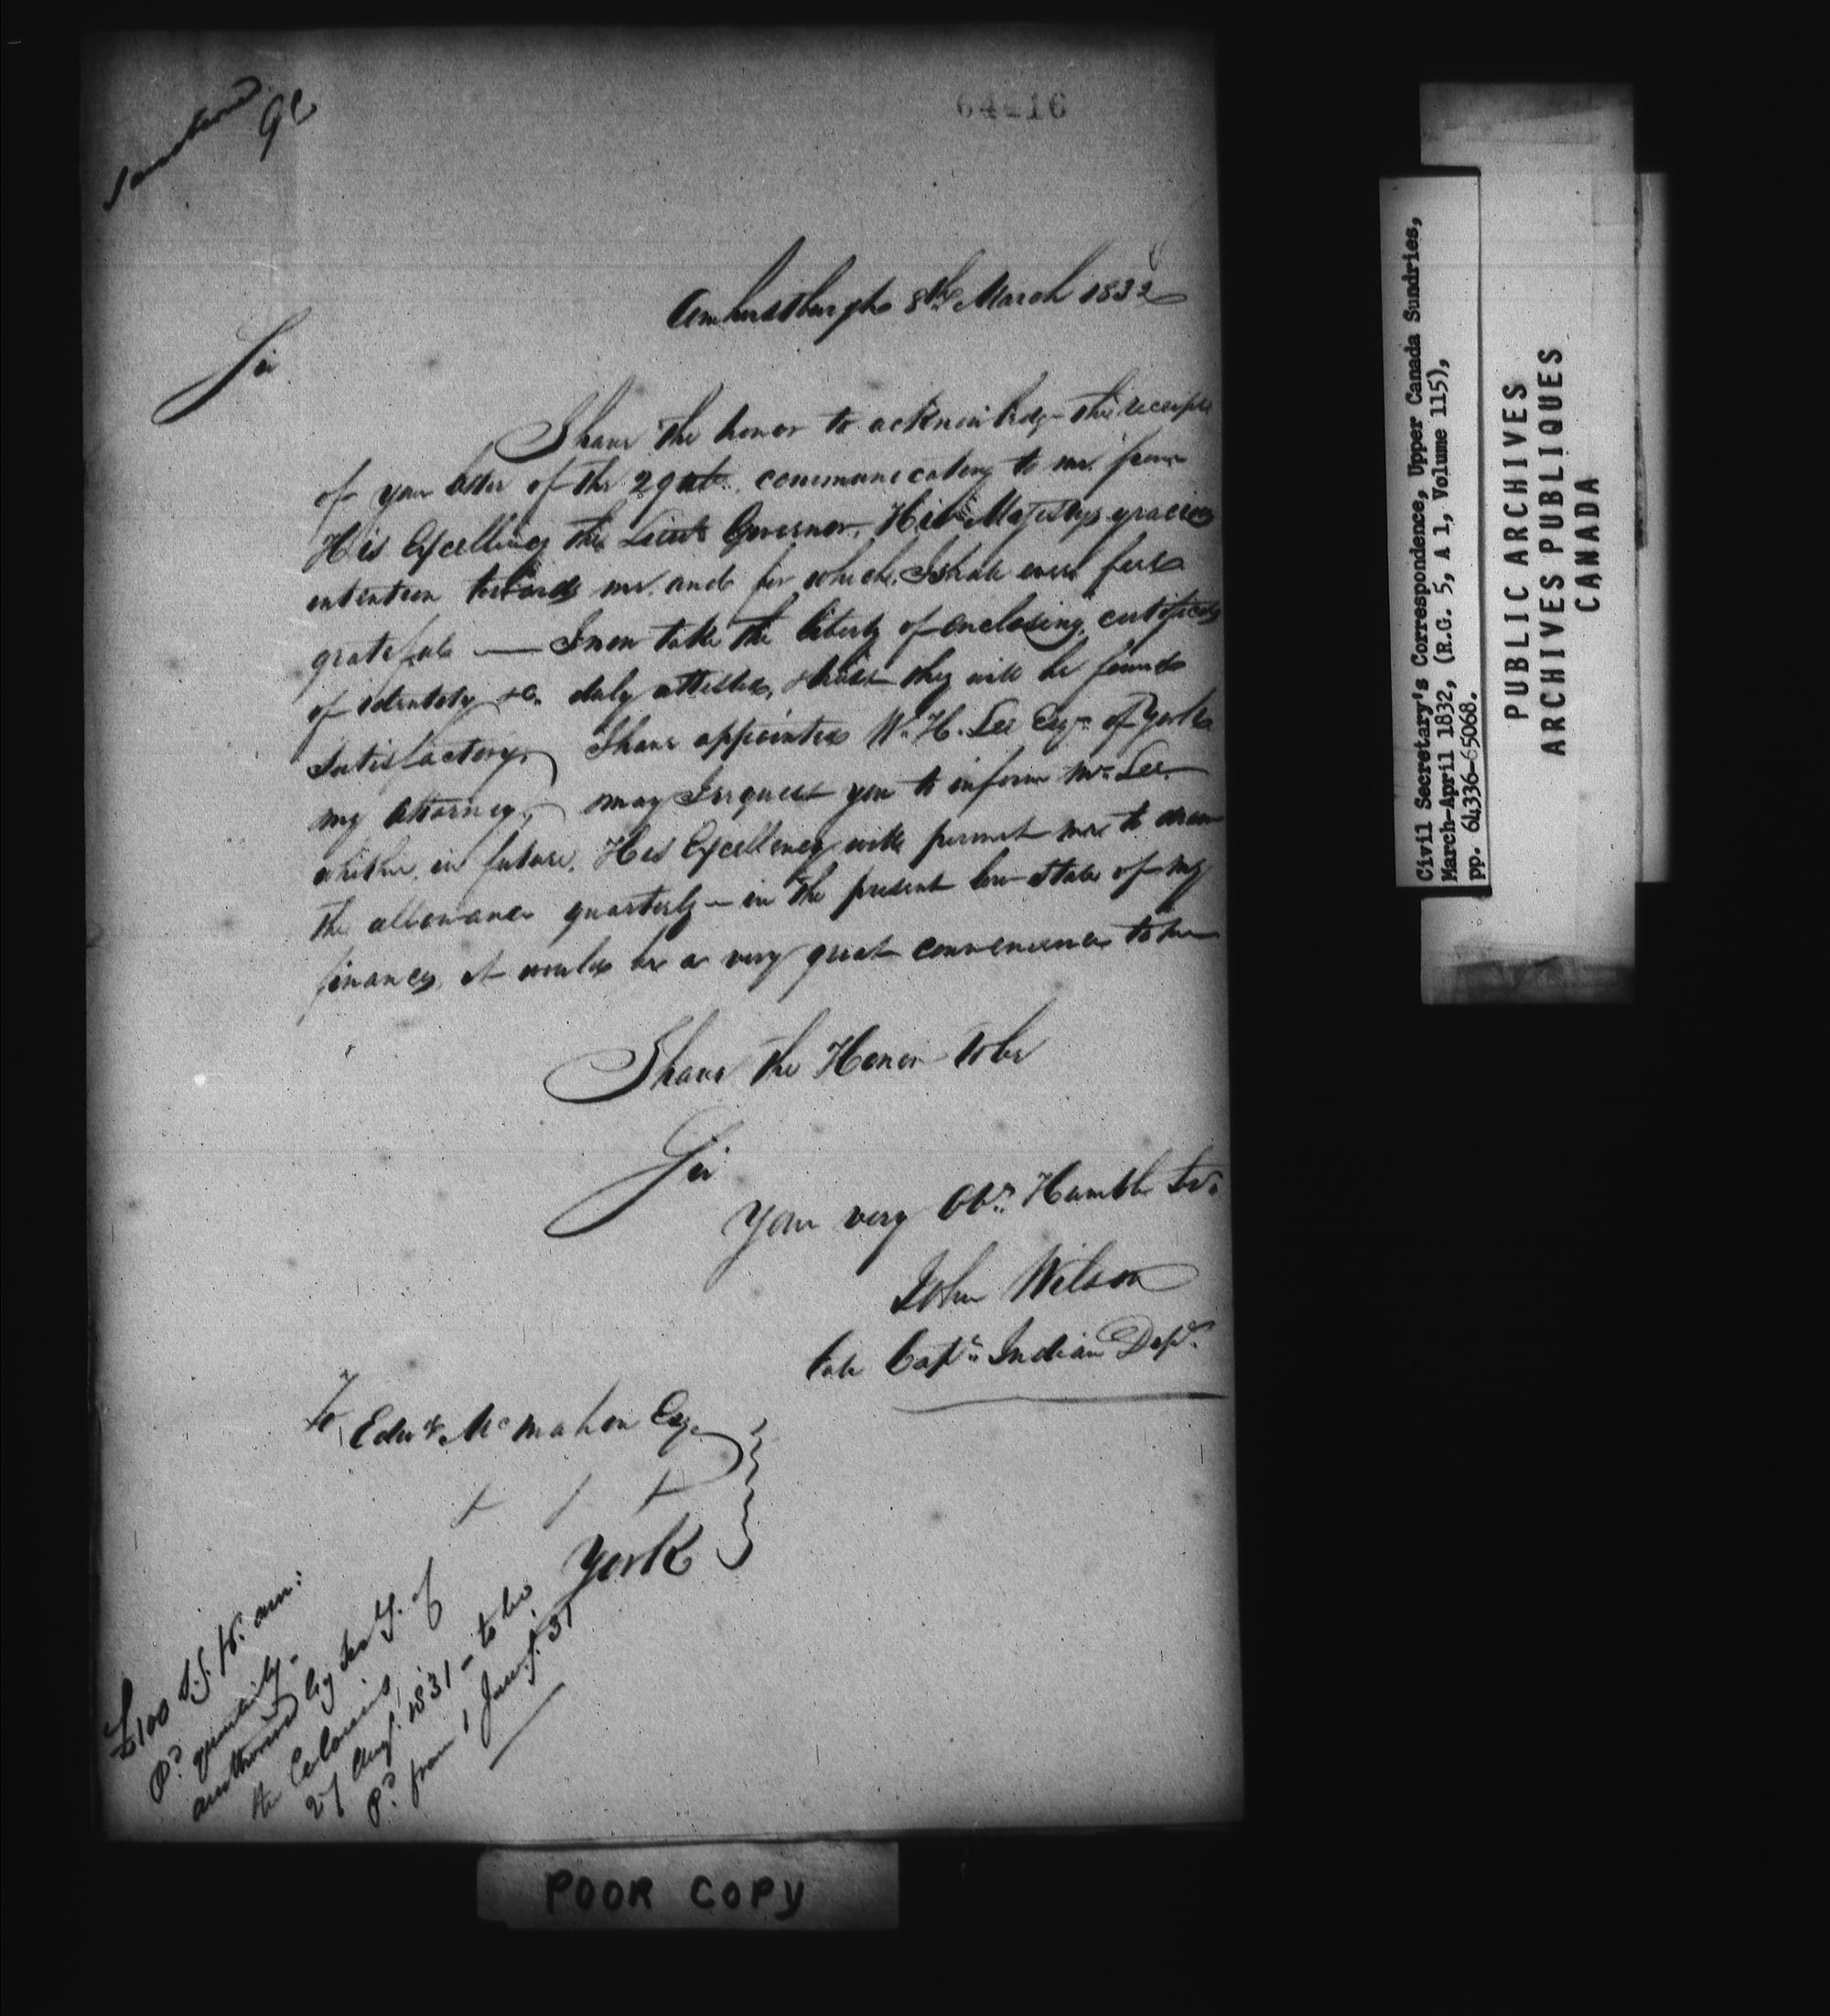 64416
Amherstburgh 8th March 1832
Sir
I have the honor to acknowledge the receipt
of your letter of the 29th ulto. communicating to me from
His Excellency the Lieut Governor, His Majestys gracious
intention towards me and for which I shall ever feel
grateful — I now take the liberty of enclosing certificates
of identity &c. duly attested, I trust they will be found
satisfactory. I have appointed W. H. Lee Esqr. of York
my Attorney, may I request you to inform Mr. Lee
whether in future, His Excellency will permit me to draw
the allowance quarterly — in the present low state of my
finances, it would be a very great convenience to me
I have the Honor to be
Sir
Your very Obt. Humble Svt.
John Wilson
late Captn. Indian Dept.
To Edwd. McMahon Esq.
York
£100 S.g. pr. ann:
Pd. quarterly -
authorised by Secy. of
the Colonies
27 Augt. 1831 - to be
Pd. from 1 Jany. 31
POOR COPY
Civil Secretary's Correspondence, Upper Canada Sundries,
March-April 1832, (R.G. 5, A 1, Volume 115),
pp. 64336-65068.
PUBLIC ARCHIVES
ARCHIVES PUBLIQUES
CANADA